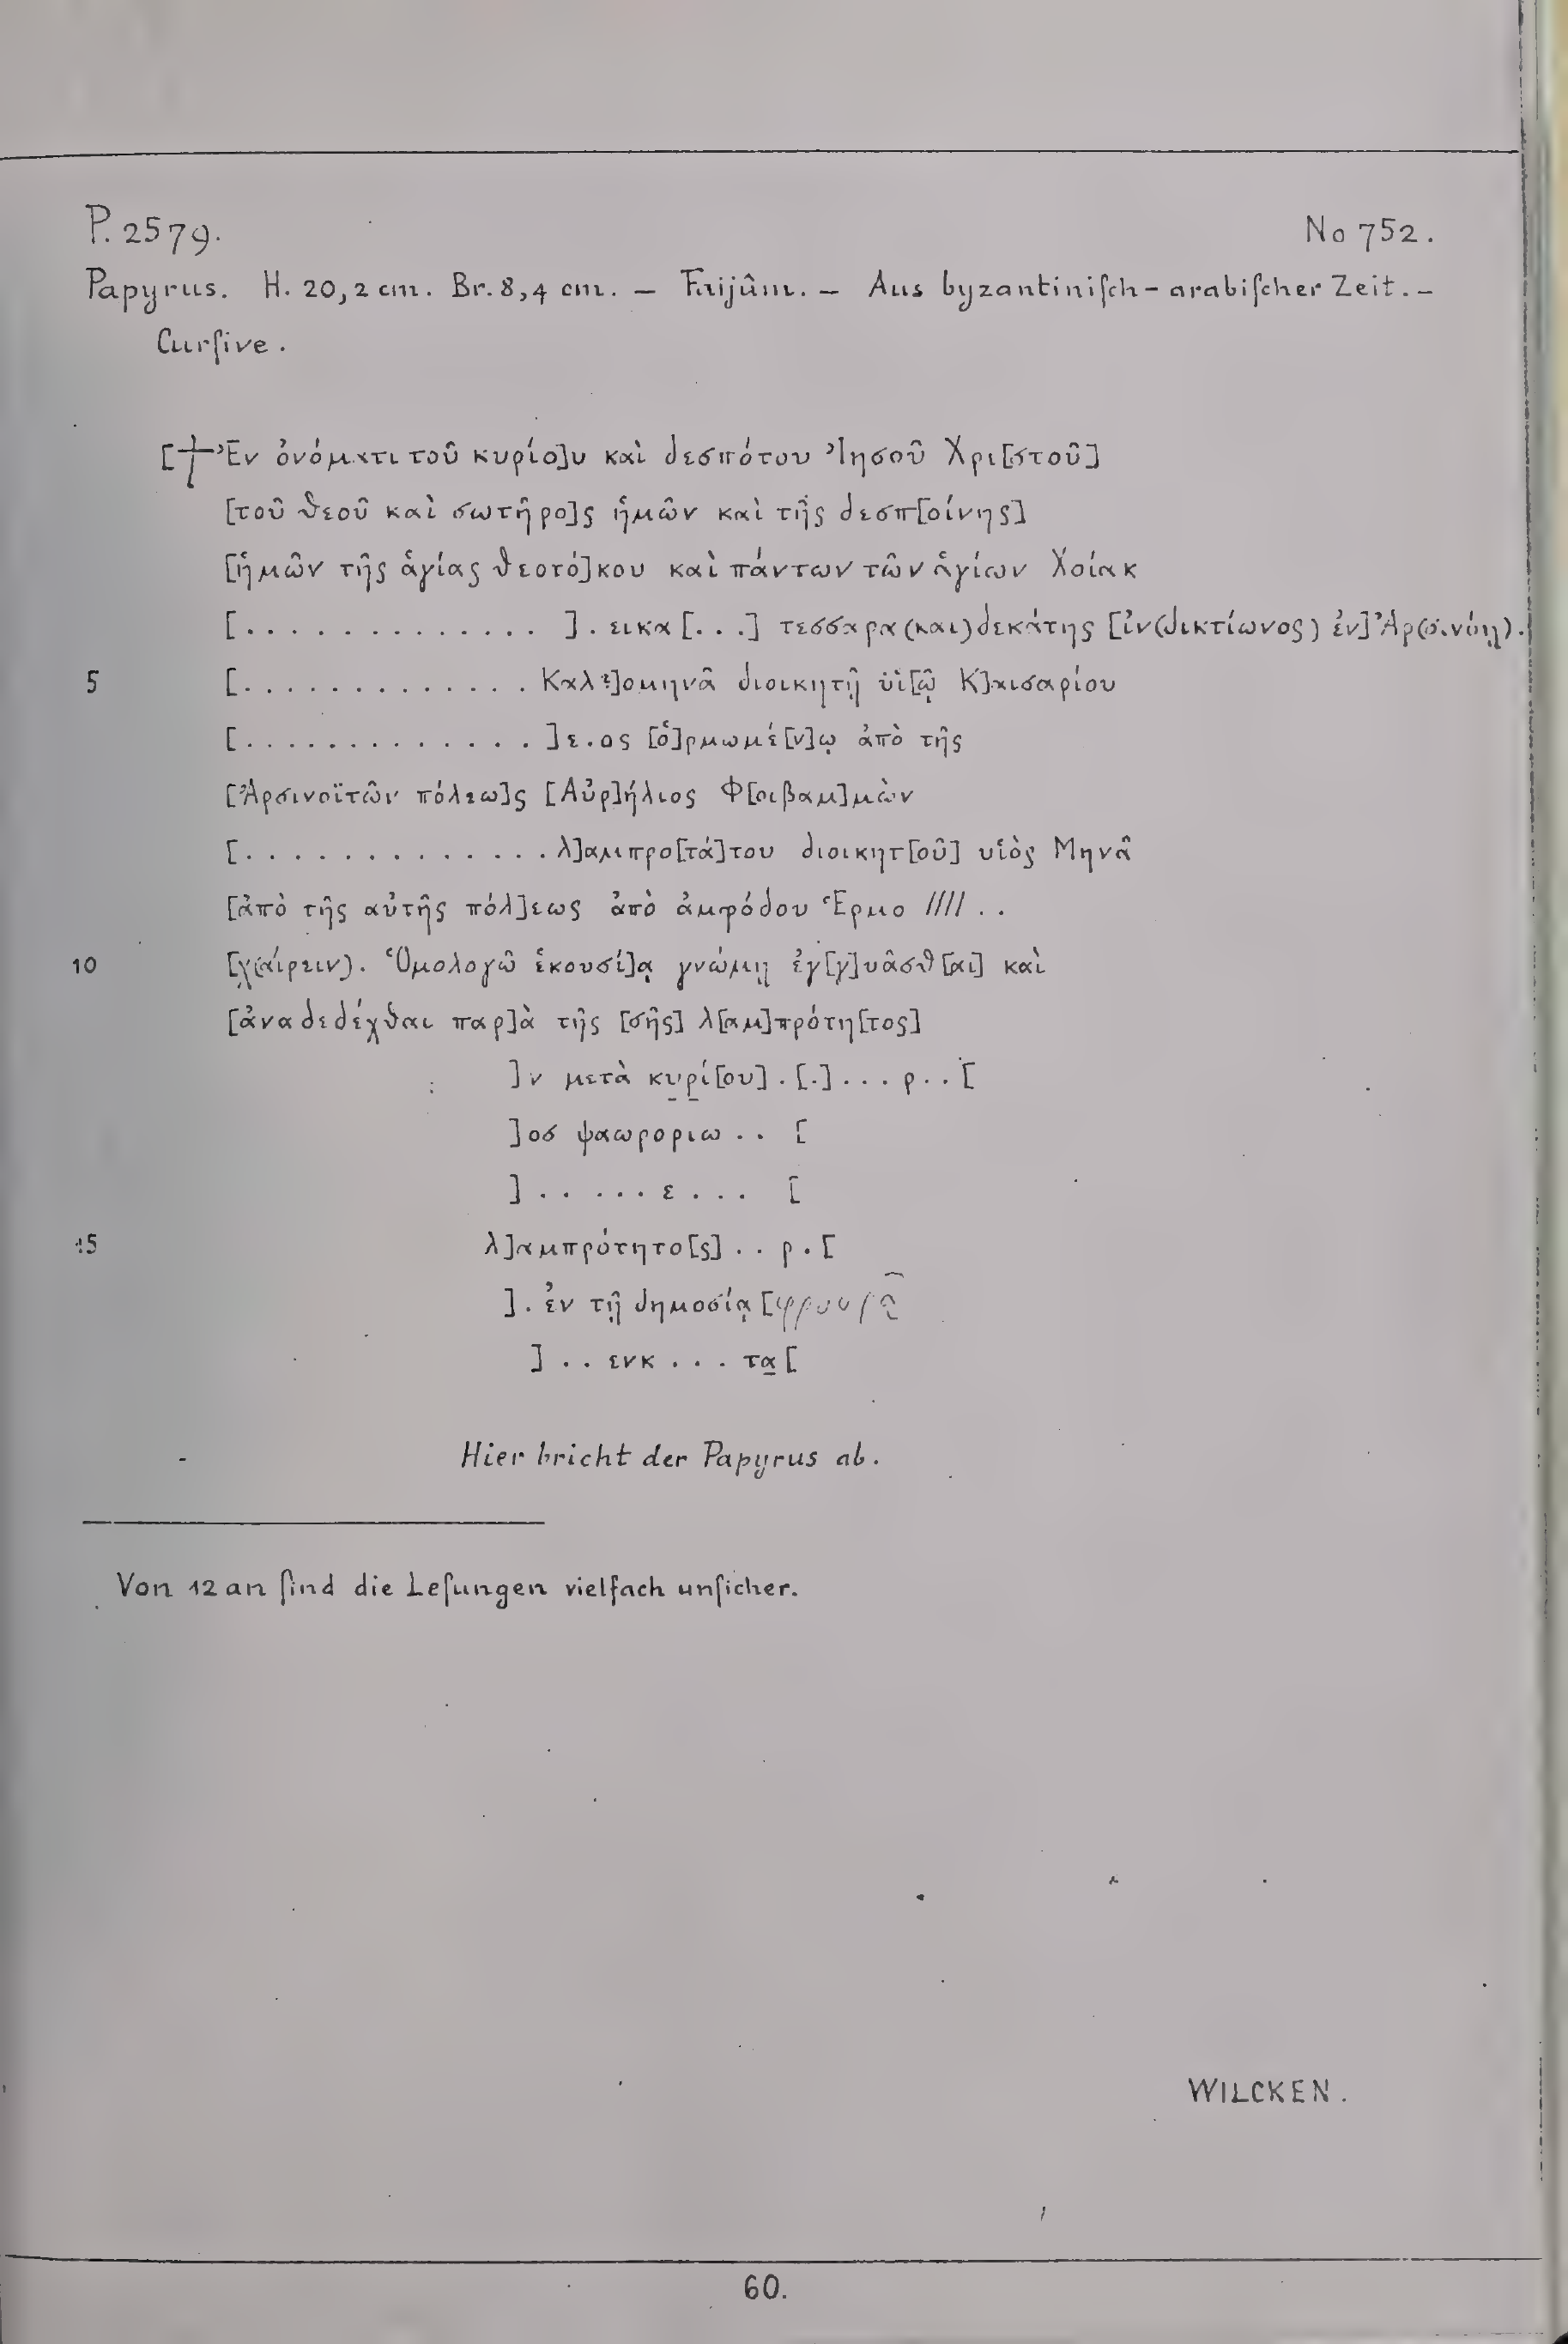 P. 2579. No 752.
Papyrus. H. 20,2 cm. Br. 8,4 cm. — Faijûm. — Aus byzantiniſch-arabiſcher Zeit. —
Curſive.
[☨ Ἐν ὀνόματι τοῦ κυρίο]υ καὶ δεσπότου Ἰησοῦ Χρι[στοῦ]
[τοῦ θεοῦ καὶ σωτῆρο]ς ἡμῶν καὶ τῆς δεσπ[οίνης]
[ἡμῶν τῆς ἁγίας θεοτό]κου καὶ πάντων τῶν ἁγίων Χοίακ
[. . . . . . . . . . . . . ] . εικα [. . .] τεσσαρα(και)δεκάτης [ἰν(δικτίωνος) ἐν] Ἀρ(σινόῃ).
5 [. . . . . . . . . . . . . Καλ]ομηνᾶ διοικητῇ υἱ[ῷ Κ]αισαρίου
[. . . . . . . . . . . . . ]ε.ος [ὁ]ρμωμέ[ν]ῳ ἀπὸ τῆς
[Ἀρσινοϊτῶν πόλεω]ς [Αὐρ]ήλιος Φ[οιβαμ]μὼν
[. . . . . . . . . . . . . . λ]αμπρο[τά]του διοικητ[οῦ] υἱὸς Μηνᾶ
[ἀπὸ τῆς αὐτῆς πόλ]εως ἀπὸ ἀμφόδου Ἑρμο //// . .
10 [χ(αίρειν). Ὁμολογῶ ἑκουσί]ᾳ γνώμῃ ἐγ[γ]υᾶσθ[αι] καὶ
[ἀναδεδέχθαι παρ]ὰ τῆς [σῆς] λ[αμ]πρότη[τος]
]ν μετὰ κυρί[ου] . [.] . . . ρ . . [
]οσ ψαωροριω . . [
] . . . . . . ε . . . [
15 λ]αμπρότητο[ς] . . ρ . [
] . ἐν τῇ δημοσίᾳ [φρουρᾷ
] . . ενκ . . . τα̲ [
Hier bricht der Papyrus ab.
Von 12 an ſind die Leſungen vielfach unſicher.
WILCKEN.
60.